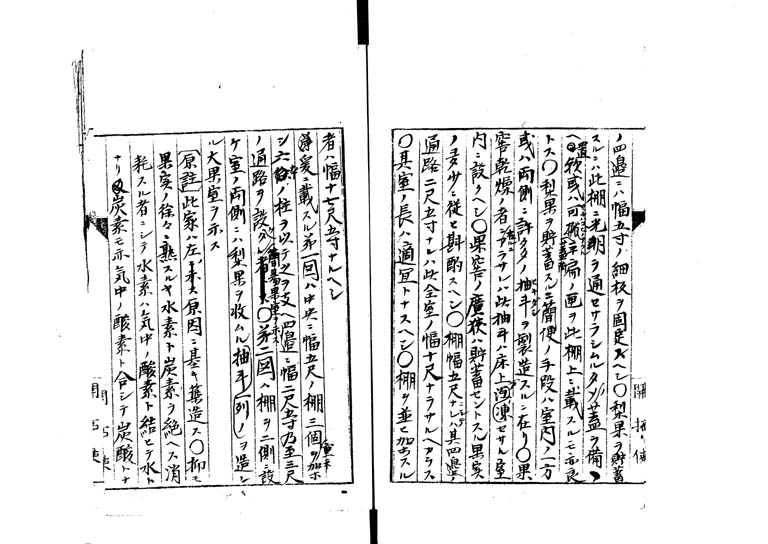 ノ四邉ニハ幅五寸ノ細板ヲ固定スヘシ〇梨果ヲ貯蓄
スルニハ此棚ニ光明ヲ通セサラシムル蓋ヲ備
ヘ置欤或ハ可搬扁ノ匣ヲ此棚上ニ載スルモ亦良
トス〇梨果ヲ貯蓄スルニ簡便ノ手段ハ室内ノ一方
或ハ両側ニ許多ノ抽斗ヲ製造スルニ在リ〇果
窖乾燥ノ者ニアラサレハ此抽斗ハ床上沍凍セサル室
内ニ設クヘシ〇果窖ノ廣狹ハ貯蓄セントスル果実
ノ多少ニ従ヒ斟酌スヘシ〇棚幅五尺ナレハ其四邉ノ
通路二尺五寸ナレハ此全室ノ幅十尺ナラサルヘカラス
〇其室ノ長ハ適宜トナスヘシ〇棚ヲ並ヒ加フル
開拓使
者ハ幅十七尺五寸ナルヘシ
爰ニ載スル第一回ハ中央ニ幅五尺ノ棚三個
シ六ノ柱ヲ以テ之ヲ支ヘ四邉ニ幅二尺五寸乃至三尺
ノ通路ヲ設ル者〇第二回ハ棚ヲ二側ニ設
ケ室ノ両側ニハ梨果ヲ收ムル抽斗一列ノヲ造シ
ル大果室ヲ示ス
原註此家ハ左ニ示ス原因ニ基キ築造ス〇抑モ
果実ノ徐々ニ熟スルヤ水素ト炭素ヲ絶ヘス消
耗スル者ニシテ水素ハ気中ノ酸素ト結ヒテ水ト
ナリ又炭素モ亦気中ノ酸素ト合シテ炭酸トナ
開拓使